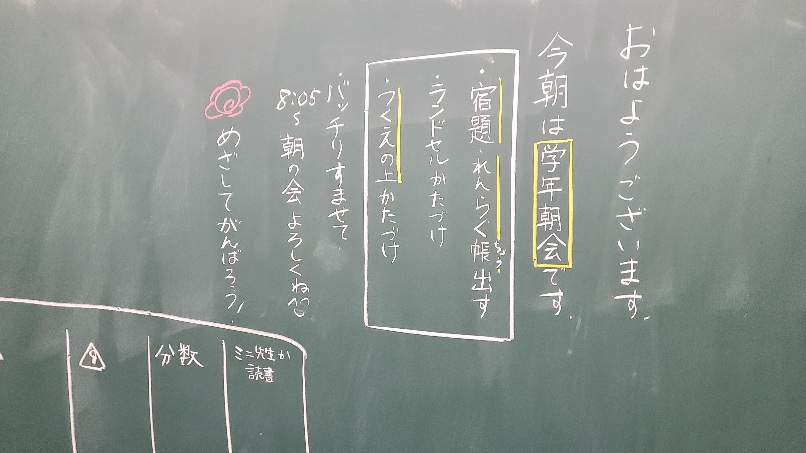 おはようございます。
今朝は学年朝会です。
・宿題・れんらく帳出す
ちょう
・ランドセルかたづけ
・つくえの上かたづけ
・バッチリすませて
8:05〜朝の会よろしくね
めざしてがんばろう!
ミニ先生か
読書
分数
9